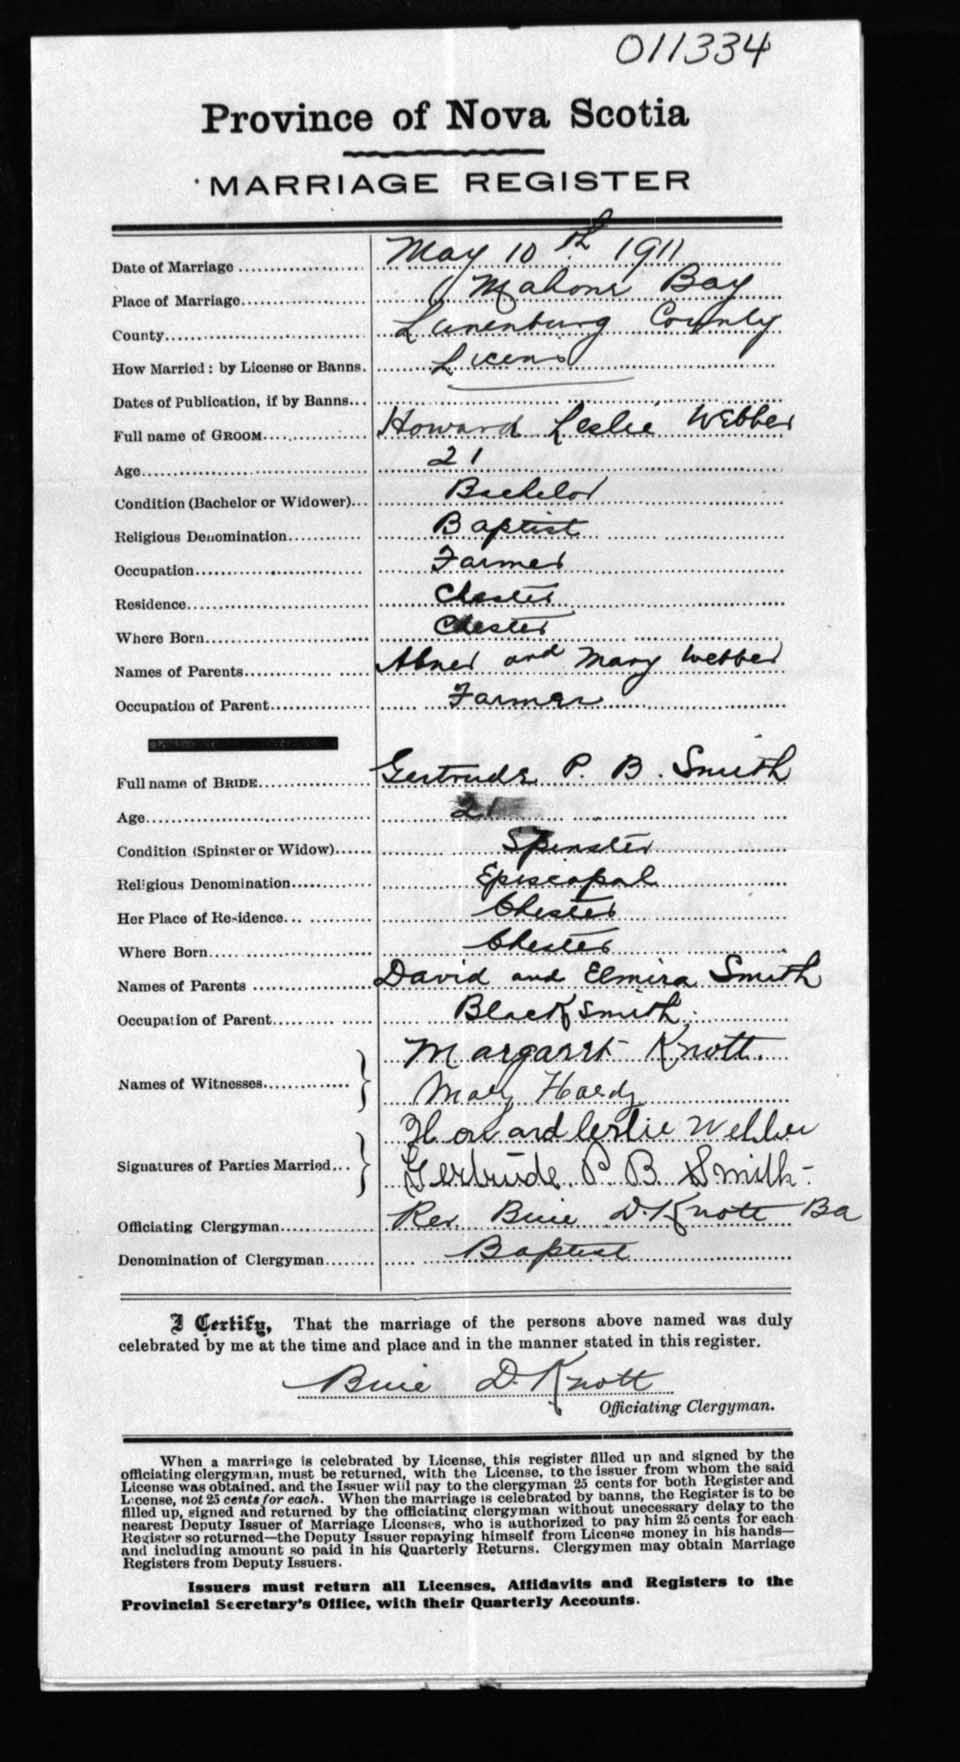 011334
Province of Nova Scotia
MARRIAGE REGISTER
Date of Marriage May 10th 1911
Place of Marriage Mahone Bay
County Lunenburg County
How Married: by License or Banns. License
Dates of Publication, if by Banns
Full name of GROOM Howard Leslie Webber
Age 21
Condition (Bachelor or Widower) Bachelor
Religious Denomination Baptist
Occupation Farmer
Residence Chester
Where Born Chester
Names of Parents Abner and Mary Webber
Occupation of Parent Farmer
Full name of BRIDE Gertrude P. B. Smith
Age 21
Condition (Spinster or Widow) Spinster
Religious Denomination Episcopal
Her Place of Residence Chester
Where Born Chester
Names of Parents David and Elmira Smith
Occupation of Parent Blacksmith.
Margaret Knott.
Names of Witnesses Mary Hardy
Howard leslie Webber
Signatures of Parties Married Gertrude P. B. Smith-
Officiating Clergyman Rev. Buie D. Knott Ba
Denomination of Clergyman Baptist
I Certify, That the marriage of the persons above named was duly
celebrated by me at the time and place and in the manner stated in this register.
Buie D. Knott
Officiating Clergyman.
When a marriage is celebrated by License, this register filled up and signed by the
officiating clergyman, must be returned, with the License, to the issuer from whom the said
License was obtained, and the Issuer will pay to the clergyman 25 cents for both Register and
License, not 25 cents for each. When the marriage is celebrated by banns, the Register is to be
filled up, signed and returned by the officiating clergyman without unecessary delay to the
nearest Deputy Issuer of Marriage Licenses, who is authorized to pay him 25 cents for each
Register so returned—the Deputy Issuer repaying himself from License money in his hands—
and including amount so paid in his Quarterly Returns. Clergymen may obtain Marriage
Registers from Deputy Issuers.
Issuers must return all Licenses, Affidavits and Registers to the
Provincial Secretary's Office, with their Quarterly Accounts.